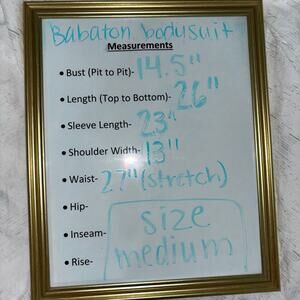 Babaton bodysuit
Measurements
• Bust (Pit to Pit)- 14.5"
• Length (Top to Bottom)- 26"
• Sleeve Length- 23"
• Shoulder Width- 13"
• Waist- 27" (stretch)
• Hip-
• Inseam-
• Rise-
size
medium